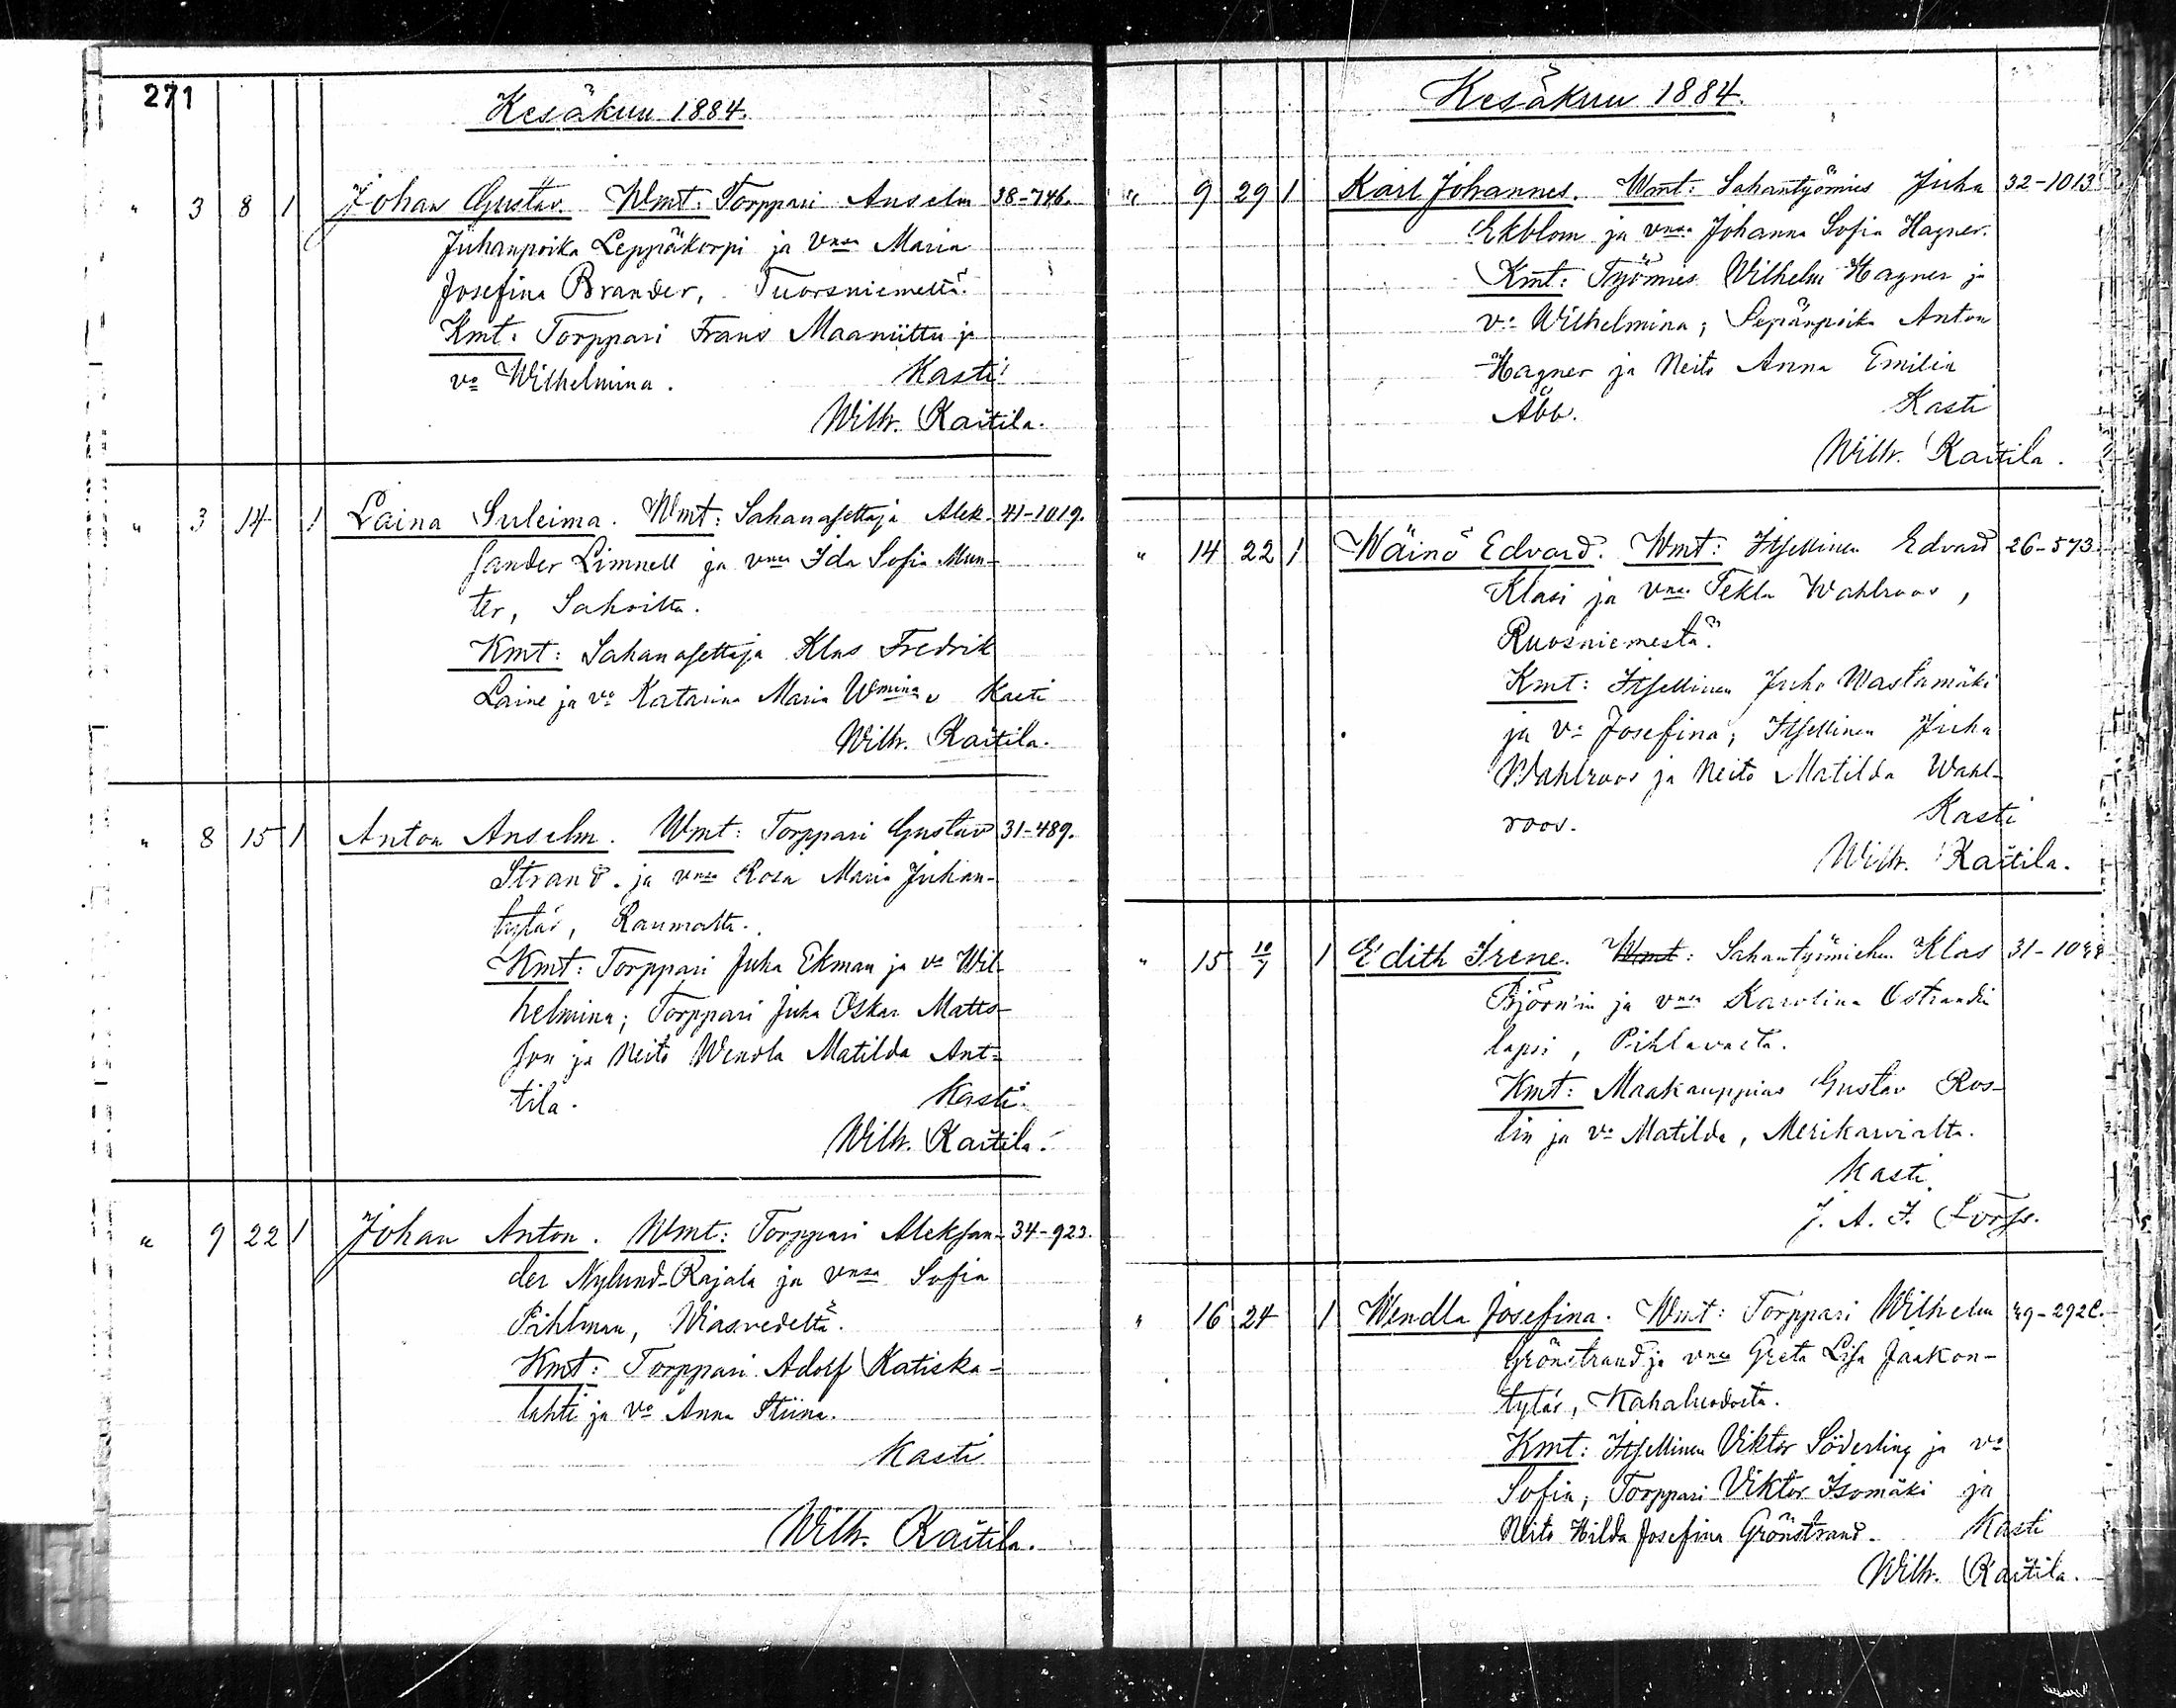 271
Kesäkuu 1884.
" 3 8 1 Johan Gustav. Wmt: Torppari Anselm 38-746.
Juhanpoika Leppäkorpi ja vnsa Maria
Josefina Brander, Tuorsniemeltä.
Kmt: Torppari Frans Maaniittu ja
vo Wilhelmina. Kasti
Wilh. Kaitila.
" 3 14 1 Laina Suleima. Wmt: Sahanasettaja Alek- 41-1019.
sander Limnell ja vnsa Ida Sofia Mun-
ter, Sahoilta.
Kmt: Sahanasettaja Klas Fredrik
Laine ja vo Katarina Maria Wmina Kasti
Wilh. Kaitila.
" 8 15 1 Anton Anselm. Wmt: Torppari Gustav 31-489.
Strand. ja vnsa Rosa Maria Juhan-
tytär, Raumalta.
Kmt: Torppari Juha Ekman ja vo Wil-
helmina; Torppari Juha Oskar Matts-
son ja Neito Wendla Matilda Ant-
tila. Kasti
Wilh. Kaitila.
" 9 22 1 Johan Anton. Wmt: Torppari Aleksan- 34-923.
der Nylund-Rajala ja vnsa Sofia
Pihlman, Wiasvedeltä.
Kmt: Torppari Adolf Katiska-
lahti ja vo Anna Stiina.
Kasti
Wilh. Kaitila.
Kesäkuu 1884.
" 9 29 1 Karl Johannes. Wmt: Sahantyömies Juha 32-1013
Ekblom ja vnsa Johanna Sofia Hagner.
Kmt: Työmies Wilhelm Hagner ja
vo Wilhelmina; Sepänpoika Anton
Hagner ja Neito Anna Emilia
Åbb. Kasti
Wilh. Kaitila.
" 14 22 1 Wäinö Edvard. Wmt: Itsellinen Edvard 26-573.
Klasi ja vnsa Tekla Wahlroos,
Ruosniemestä.
Kmt: Itsellinen Juho Wastamäki
ja vo Josefina; Itsellinen Juha
Wahlroos ja Neito Matilda Wahl-
roos. Kasti
Wilh. Kaitila.
" 15 10/7 1 Edith Irene. Wmt: Sahantyömiehen Klas
Björn'in ja vnsa Karolina Östrandin
lapsi, Pihlavasta.
Kmt: Maakauppias Gustav Ros-
lin ja vo Matilda, Merikarvialta.
Kasti
J. A. F.
" 16 24 1 Wendla Josefina. Wmt: Torppari Wilhelm
Grönstrand ja vnsa Greta Lisa Jaakon-
tytär, Kahaluodosta.
Kmt: Itsellinen Viktor Söderling ja vo
Sofia; Torppari Viktor Isomäki ja
Neito Hilda Josefina Grönstrand. Kasti
Wilh. Kaitila.